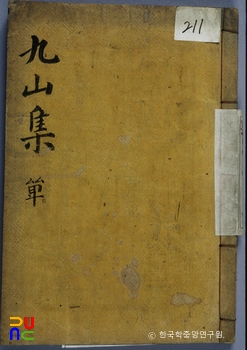 九山集
單
211
© 한국학중앙연구원